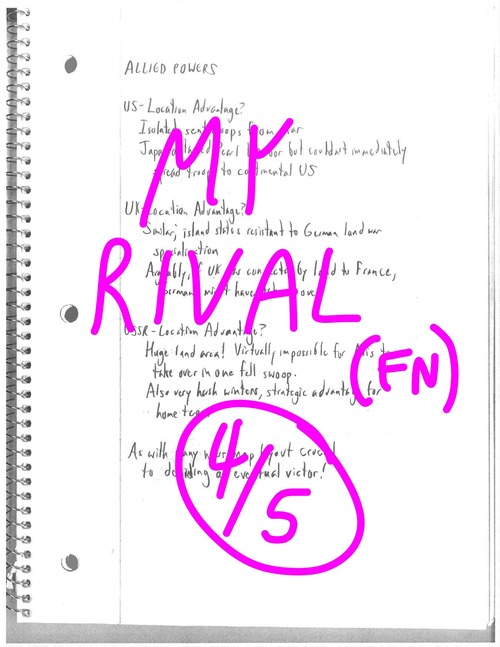 ALLIED POWERS
US-Location Advantage?
Isolated, sent troops from
Japan Pearl but couldn't immediately
spread troops to continental US
MY
UK-Location Advantage?
Similar, island status resistant to German land war
specialization
Arguably, if UK was connected by land to France,
RIVAL
USSR-Location Advantage?
Huge land area! Virtually impossible for Axis to
take over in one fell swoop.
(FN)
Also very harsh winters, strategic advantage for
home
As with many map layout crucial
to deciding eventual victor!
4/5